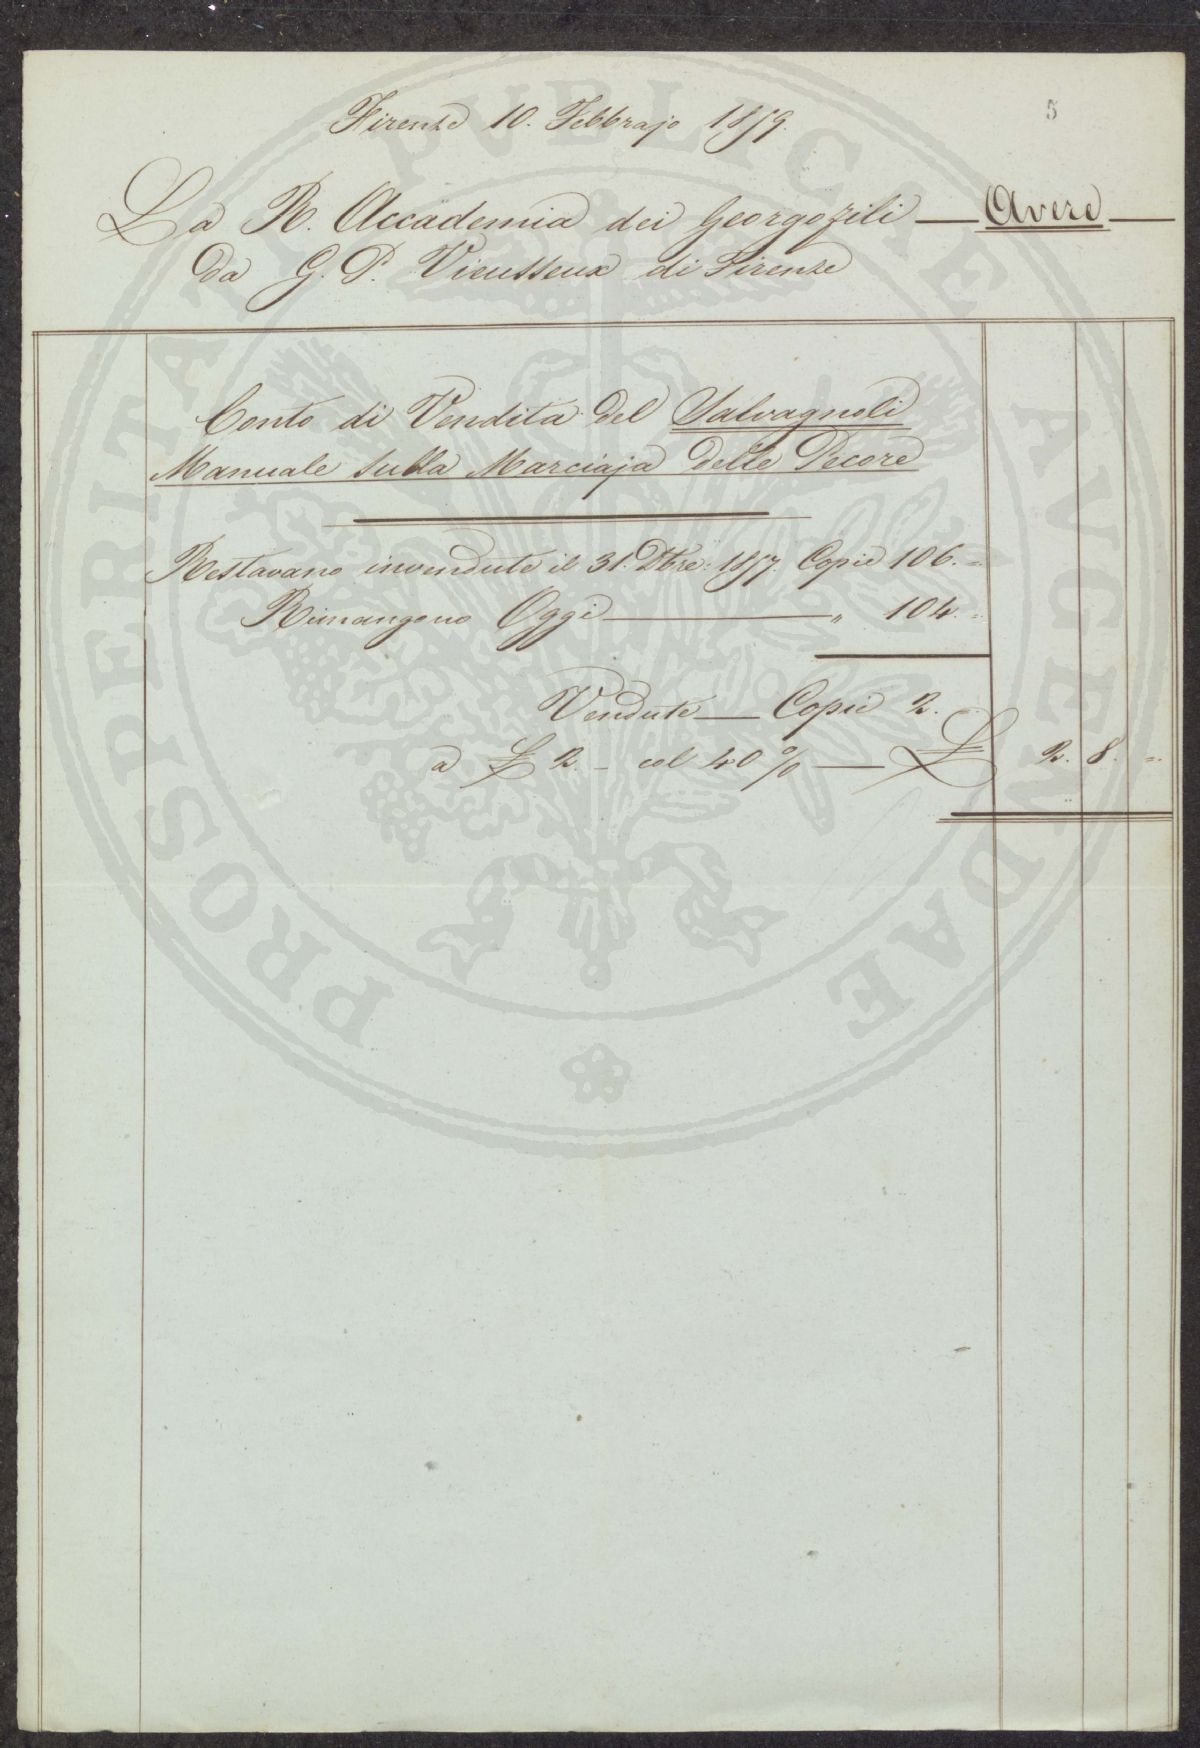 5
Firenze 10. Febbrajo 1859.
La R. Accademia dei Georgofili — Avere —
Da G. P. Vieusseux di Firenze
Conto di Vendita del Salvagnoli
Manuale sulla Marciaja delle Pecore
Restavano invendute il 31. Xbre: 1857. Copie 106. =
Rimangono Oggi — " 104. =
Vendute — Copie 2.
a £ 2. - col 40 % — £ 2. 8. =
PROSPERITATI PVBLICAE AVGENDAE